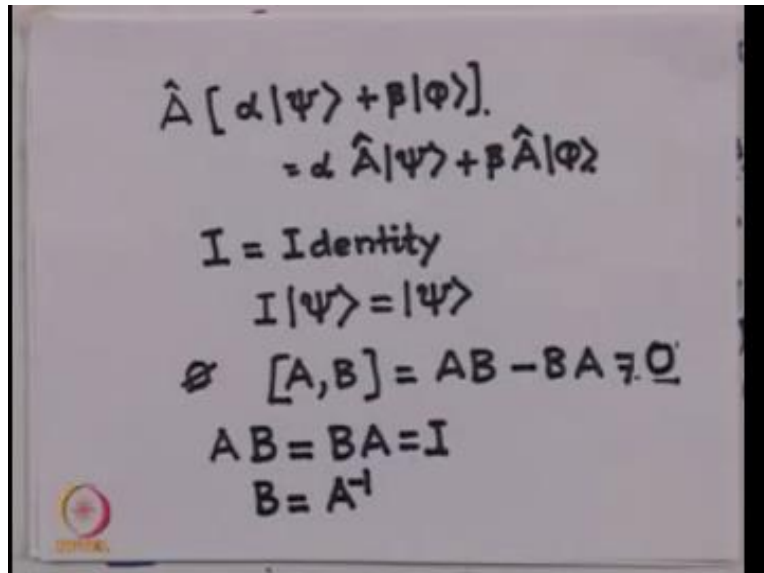 Â [ α|Ψ⟩ + β|Φ⟩].
= α Â|Ψ⟩ + β Â|Φ⟩
I = Identity
I|Ψ⟩ = |Ψ⟩
[A, B] = AB − BA ≠ 0
AB = BA = I
B = A⁻¹